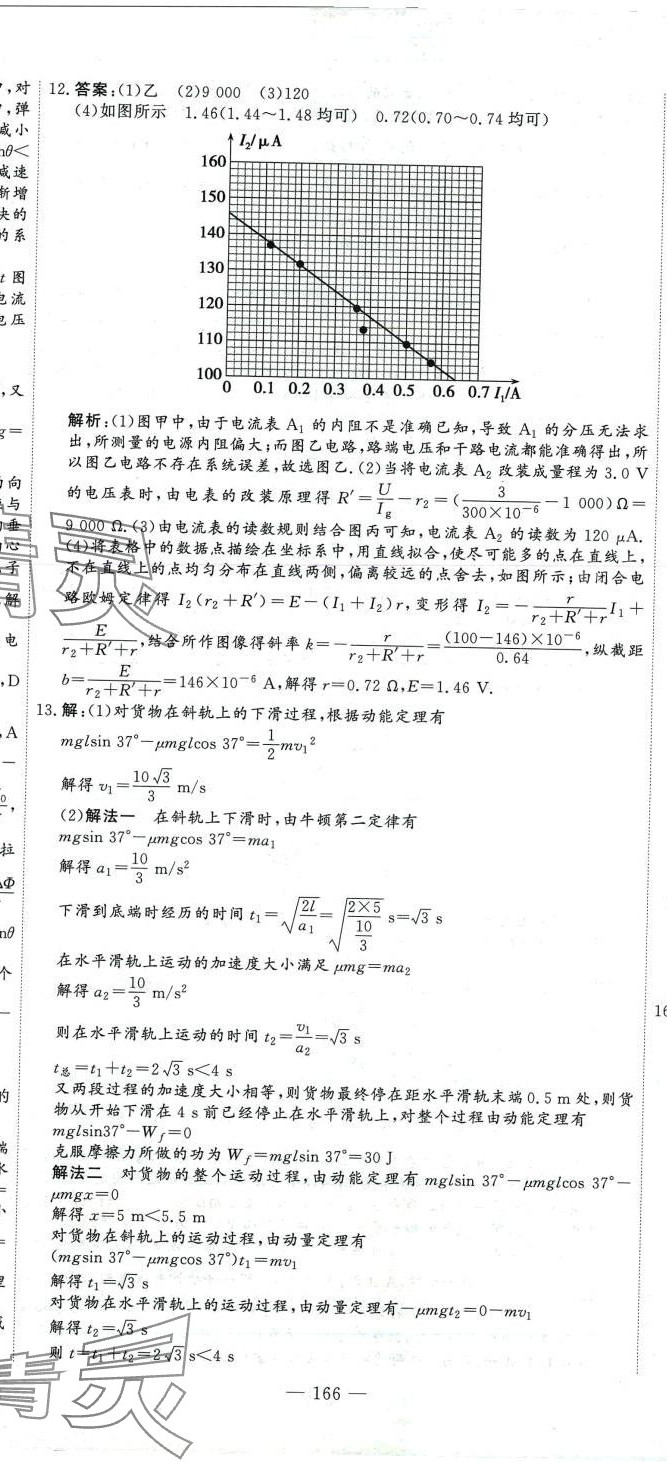 12.答案:(1)乙 (2)9 000 (3)120
(4)如图所示 1.46(1.44~1.48 均可) 0.72(0.70~0.74 均可)
I₂/μA
160
150
140
130
120
110
100
0 0.1 0.2 0.3 0.4 0.5 0.6 0.7 I₁/A
解析:(1)图甲中,由于电流表 A₁ 的内阻不是准确已知,导致 A₁ 的分压无法求
出,所测量的电源内阻偏大;而图乙电路,路端电压和干路电流都能准确得出,所
以图乙电路不存在系统误差,故选图乙.(2)当将电流表 A₂ 改装成量程为 3.0 V
的电压表时,由电表的改装原理得 R′=U/I_g−r₂=(3/(300×10⁻⁶)−1 000)Ω=
9 000 Ω.(3)由电流表的读数规则结合图丙可知,电流表 A₂ 的读数为 120 μA.
(4)将表格中的数据点描绘在坐标系中,用直线拟合,使尽可能多的点在直线上,
不在直线上的点均匀分布在直线两侧,偏离较远的点舍去,如图所示;由闭合电
路欧姆定律得 I₂(r₂+R′)=E−(I₁+I₂)r,变形得 I₂=−r/(r₂+R′+r)I₁+
E/(r₂+R′+r),结合所作图像得斜率 k=−r/(r₂+R′+r)=(100−146)×10⁻⁶/0.64,纵截距
b=E/(r₂+R′+r)=146×10⁻⁶ A,解得 r=0.72 Ω,E=1.46 V.
13.解:(1)对货物在斜轨上的下滑过程,根据动能定理有
mglsin 37°−μmglcos 37°=1/2mv₁²
解得 v₁=10√3/3 m/s
(2)解法一 在斜轨上下滑时,由牛顿第二定律有
mgsin 37°−μmgcos 37°=ma₁
解得 a₁=10/3 m/s²
下滑到底端时经历的时间 t₁=√(2l/a₁)=√(2×5/(10/3)) s=√3 s
在水平滑轨上运动的加速度大小满足 μmg=ma₂
解得 a₂=10/3 m/s²
则在水平滑轨上运动的时间 t₂=v₁/a₂=√3 s
t总=t₁+t₂=2√3 s<4 s
又两段过程的加速度大小相等,则货物最终停在距水平滑轨末端 0.5 m 处,则货
物从开始下滑在 4 s 前已经停止在水平滑轨上,对整个过程由动能定理有
mglsin37°−W_f=0
克服摩擦力所做的功为 W_f=mglsin 37°=30 J
解法二 对货物的整个运动过程,由动能定理有 mglsin 37°−μmglcos 37°−
μmgx=0
解得 x=5 m<5.5 m
对货物在斜轨上的运动过程,由动量定理有
(mgsin 37°−μmgcos 37°)t₁=mv₁
解得 t₁=√3 s
对货物在水平滑轨上的运动过程,由动量定理有−μmgt₂=0−mv₁
解得 t₂=√3 s
则 t=t₁+t₂=2√3 s<4 s
— 166 —